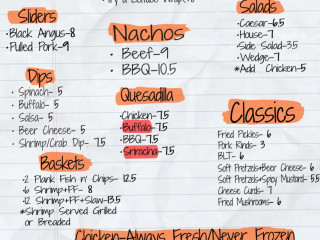 Sliders
• Black Angus-8
• Pulled Pork-9
Dips
• Spinach- 5
• Buffalo- 5
• Salsa- 5
• Beer Cheese- 5
• Shrimp/Crab Dip- 7.5
Baskets
•2 Plank Fish n' Chips- 12.5
•6 Shrimp+FF- 8
•12 Shrimp+FF+Slaw-13.5
*Shrimp Served Grilled
or Breaded
Nachos
• Beef-9
• BBQ-10.5
Quesadilla
•Chicken-7.5
•Buffalo-7.5
•BBQ-7.5
•Sriracha-7.5
Salads
•Caesar-6.5
•House-7
•Side Salad-3.5
•Wedge-7
*Add Chicken-5
Classics
Fried Pickles- 6
Pork Rinds- 3
BLT- 6
Soft Pretzels+Beer Cheese- 6
Soft Pretzels+Spicy Mustard- 5.5
Cheese Curds- 7
Fried Mushrooms- 6
Chicken-Always Fresh/Never Frozen